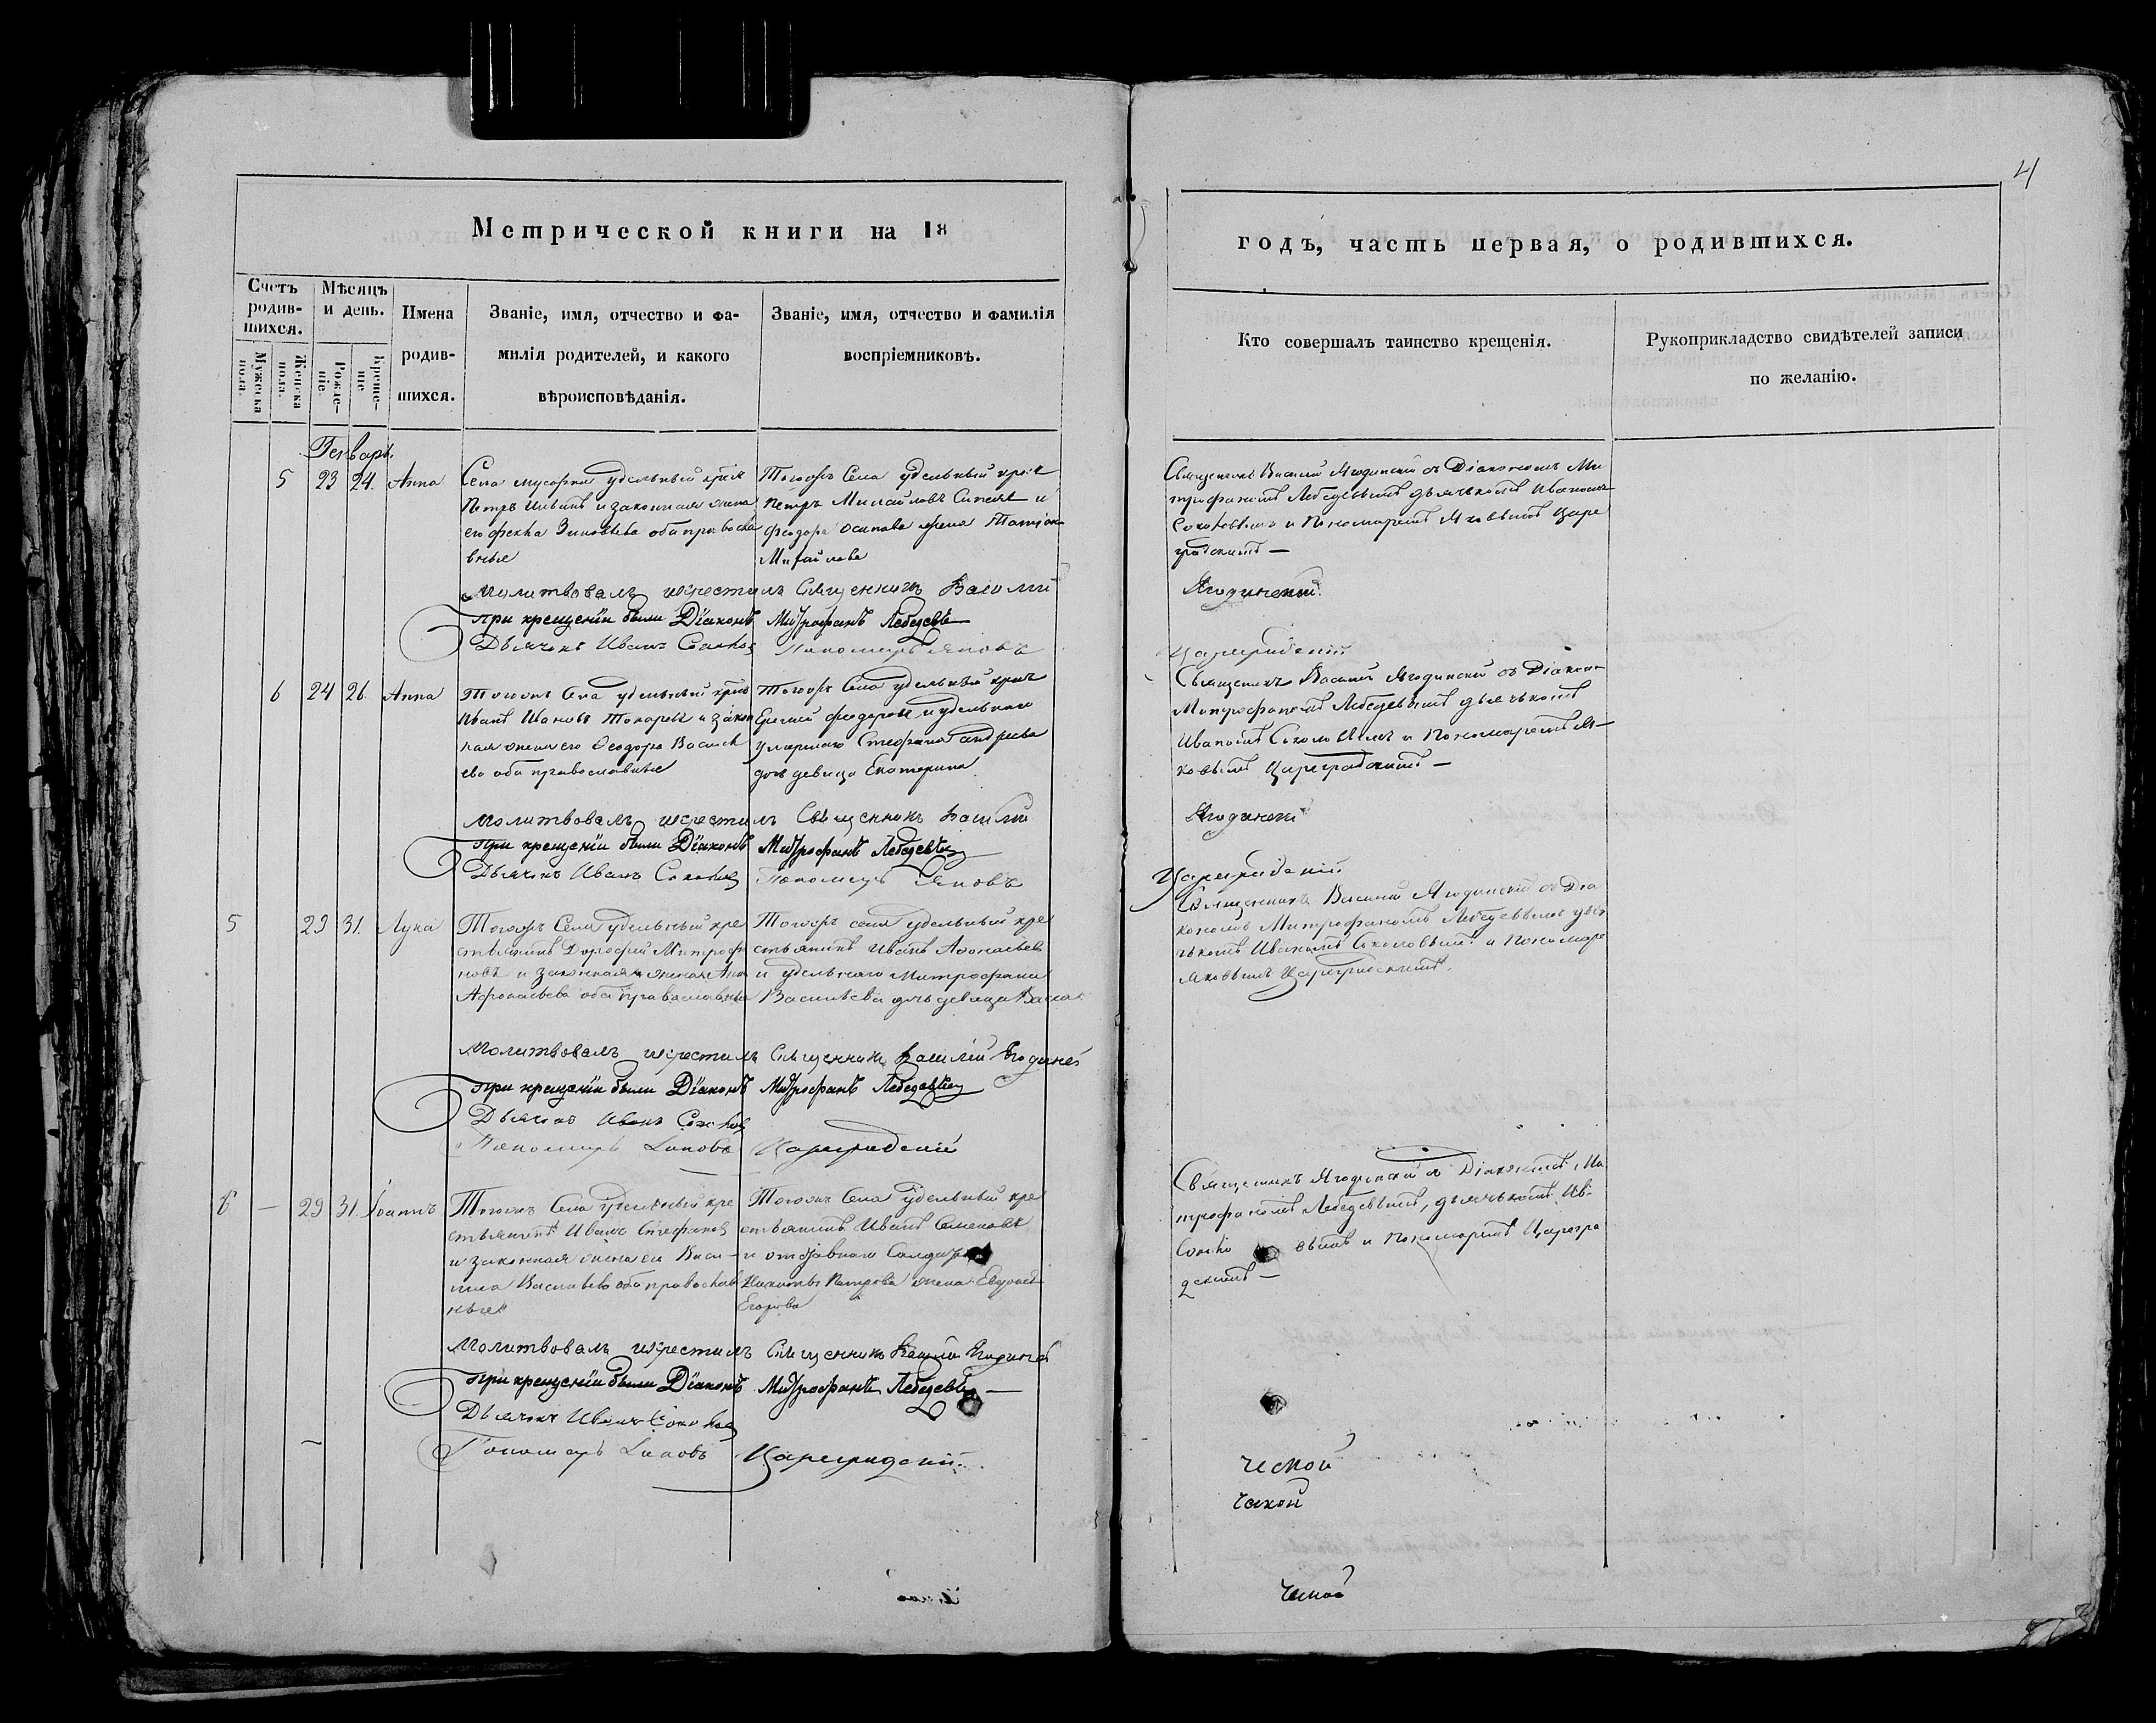 4
Метрической книги на 18
годъ, часть первая, о родившихся.
Счетъ родив-шихся.
Мѣсяцъ и день.
Имена родив-шихся.
Званіе, имя, отчество и фа-
милія родителей, и какого
вѣроисповѣданія.
Званіе, имя, отчество и фамилія
воспріемниковъ.
Кто совершалъ таинство крещенія.
Рукоприкладство свидѣтелей записи
по желанію.
Мужеска пола.
Женска пола.
Рожде-ніе
Креще-ніе
Генварь.
5 23 24. Анна
Села удельный
Петръ и законная жена
его Зиновьева оба правосла
вные
Тогожъ Села удельный
Петръ Михайловъ и
Феодора Осипова жена
Михайлова
Священникъ Василий Ягодинский съ Діакономъ Ми
трофаномъ Лебедевымъ дьячькомъ Иваномъ
Соколовымъ и Пономаремъ Яковымъ Царе
градскимъ —
Молитвовалъ и крестилъ Священникъ Василий
Ягодинский
При крещеніи были Діаконъ Митрофанъ Лебедевъ
Дьячокъ Иванъ Соколовъ Пономарь Яковъ
Цареградский
6 24 26. Анна
Тогожъ Села удельный
Иванъ Ивановъ Токаревъ и закон
ная жена его Феодора Василь
ева оба православные
Тогожъ Села удельный
Феодоровъ и удельнаго
умершаго Стефана Андреева
дочь девица Екатерина
Священникъ Василий Ягодинский съ Діакон
Митрофаномъ Лебедевымъ дьячькомъ
Иваномъ Соколовымъ и Пономаремъ Я—
ковымъ Цареградскимъ —
Молитвовалъ и крестилъ Священникъ Василий
Ягодинский
При крещеніи были Діаконъ Митрофанъ Лебедевъ
Дьячокъ Иванъ Соколовъ Пономарь Яковъ
Цареградский
5 29 31. Лука
Тогожъ Села удельный кре
стьянинъ Дорофей Митрофа
новъ и законная жена Анна
Афонасьева оба православные
Тогожъ села удельный кре
стьянинъ Иванъ Афонасьевъ
и удельнаго Митрофана
Васильева дочь девица
Священникъ Василий Ягодинский съ Диа
кономъ Митрофаномъ Лебедевымъ дья
чькомъ Иваномъ Соколовымъ и Пономаре
Яковымъ Цареградскимъ.
Молитвовалъ и крестилъ Священникъ Василій Ягодинский
При крещеніи были Діаконъ Митрофанъ Лебедевъ
Дьячокъ Иванъ Соколовъ
Пономарь Яковъ Цареградский
6 — 29 31. Іоаннъ
Тогожъ Села удельный кре
стьянинъ Иванъ Стефановъ
и законная жена его Васи—
лиса Васильева оба православ
ные
Тогожъ Села удельный кре
стьянинъ Иванъ Семеновъ
и отставнаго Солдата
Никиты Петрова жена
Егорова
Священникъ Ягодинский съ Діакономъ Ми
трофаномъ Лебедевымъ, дьячькомъ Ив.
Соколо вымъ и Пономаремъ Царегра
дскимъ —
Молитвовалъ и крестилъ Священникъ Василий Ягодинский
При крещеніи были Діаконъ Митрофанъ Лебедевъ —
Дьячокъ Иванъ Соколовъ
Пономарь Яковъ Цареградский.
ческой